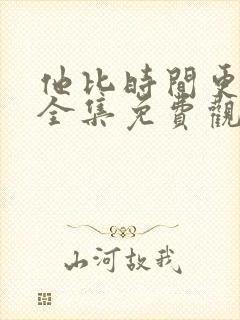 他比時間更
全集免費觀
山河故我